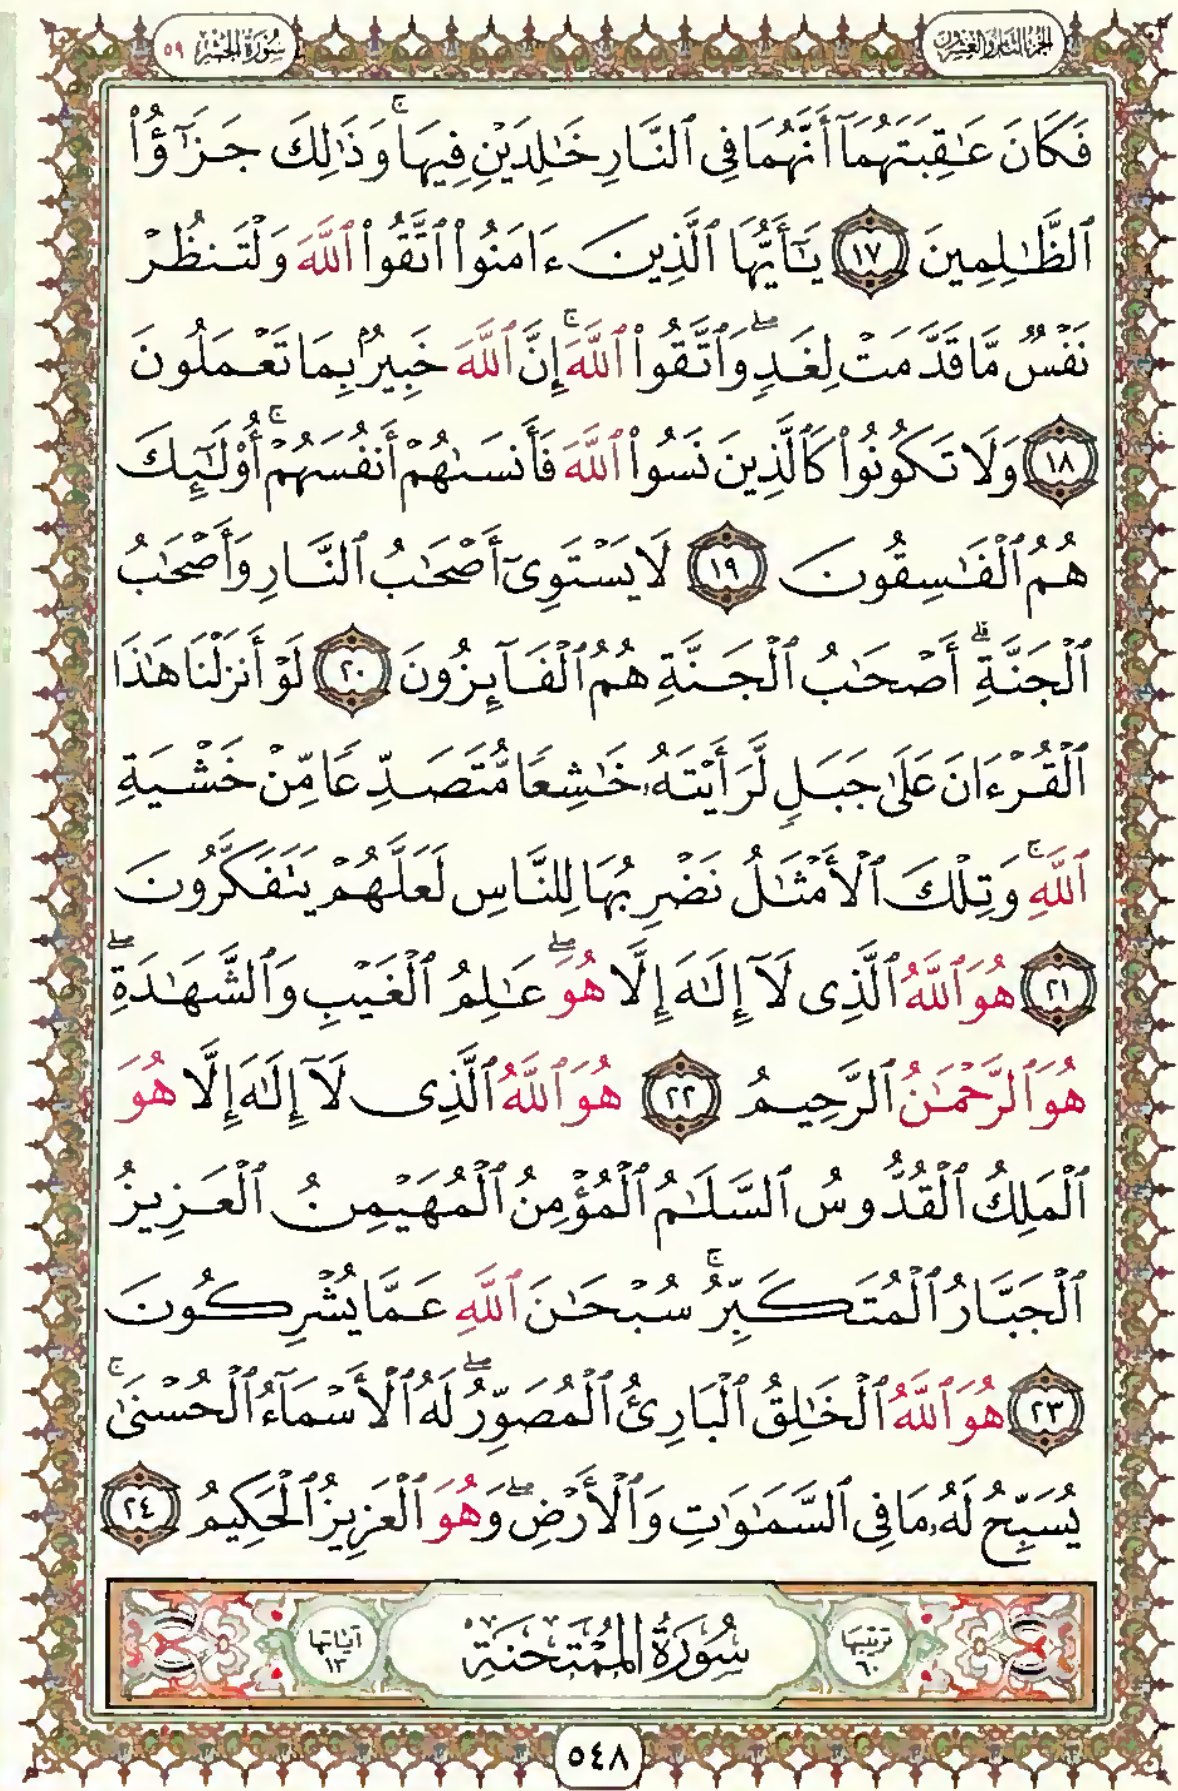 الجزء الثامن والعشرون
سُورَةُ الحَشْرِ ٥٩
فَكَانَ عَـٰقِبَتَهُمَآ أَنَّهُمَا فِى ٱلنَّارِ خَـٰلِدَيْنِ فِيهَا ۚ وَذَٰلِكَ جَزَٰٓؤُا۟
ٱلظَّـٰلِمِينَ ١٧ يَـٰٓأَيُّهَا ٱلَّذِينَ ءَامَنُوا۟ ٱتَّقُوا۟ ٱللَّهَ وَلْتَنظُرْ
نَفْسٌ مَّا قَدَّمَتْ لِغَدٍ ۖ وَٱتَّقُوا۟ ٱللَّهَ ۚ إِنَّ ٱللَّهَ خَبِيرٌۢ بِمَا تَعْمَلُونَ
١٨ وَلَا تَكُونُوا۟ كَٱلَّذِينَ نَسُوا۟ ٱللَّهَ فَأَنسَىٰهُمْ أَنفُسَهُمْ ۚ أُو۟لَـٰٓئِكَ
هُمُ ٱلْفَـٰسِقُونَ ١٩ لَا يَسْتَوِىٓ أَصْحَـٰبُ ٱلنَّارِ وَأَصْحَـٰبُ
ٱلْجَنَّةِ ۚ أَصْحَـٰبُ ٱلْجَنَّةِ هُمُ ٱلْفَآئِزُونَ ٢٠ لَوْ أَنزَلْنَا هَـٰذَا
ٱلْقُرْءَانَ عَلَىٰ جَبَلٍ لَّرَأَيْتَهُۥ خَـٰشِعًا مُّتَصَدِّعًا مِّنْ خَشْيَةِ
ٱللَّهِ ۚ وَتِلْكَ ٱلْأَمْثَـٰلُ نَضْرِبُهَا لِلنَّاسِ لَعَلَّهُمْ يَتَفَكَّرُونَ
٢١ هُوَ ٱللَّهُ ٱلَّذِى لَآ إِلَـٰهَ إِلَّا هُوَ ۖ عَـٰلِمُ ٱلْغَيْبِ وَٱلشَّهَـٰدَةِ ۖ
هُوَ ٱلرَّحْمَـٰنُ ٱلرَّحِيمُ ٢٢ هُوَ ٱللَّهُ ٱلَّذِى لَآ إِلَـٰهَ إِلَّا هُوَ
ٱلْمَلِكُ ٱلْقُدُّوسُ ٱلسَّلَـٰمُ ٱلْمُؤْمِنُ ٱلْمُهَيْمِنُ ٱلْعَزِيزُ
ٱلْجَبَّارُ ٱلْمُتَكَبِّرُ ۚ سُبْحَـٰنَ ٱللَّهِ عَمَّا يُشْرِكُونَ
٢٣ هُوَ ٱللَّهُ ٱلْخَـٰلِقُ ٱلْبَارِئُ ٱلْمُصَوِّرُ ۖ لَهُ ٱلْأَسْمَآءُ ٱلْحُسْنَىٰ ۚ
يُسَبِّحُ لَهُۥ مَا فِى ٱلسَّمَـٰوَٰتِ وَٱلْأَرْضِ ۖ وَهُوَ ٱلْعَزِيزُ ٱلْحَكِيمُ ٢٤
ترتيبها ٦٠ سُورَةُ المُمْتَحنَةِ آياتها ١٣
٥٤٨